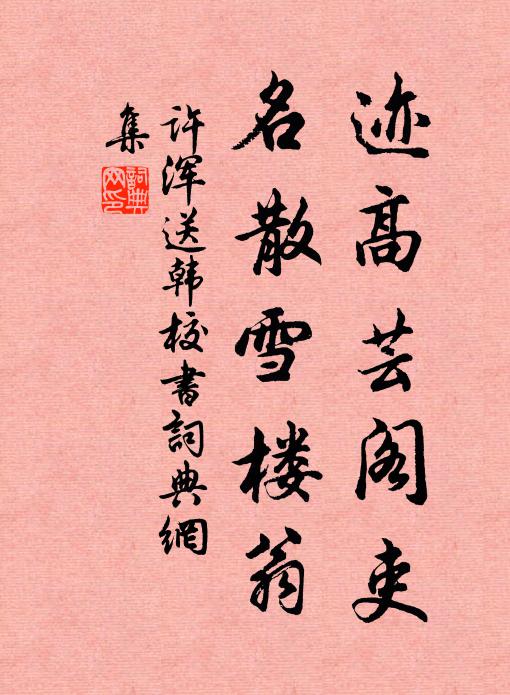 迹高芸阁吏
名散雪楼翁
许浑送韩校书詞典網
集
詞典网印